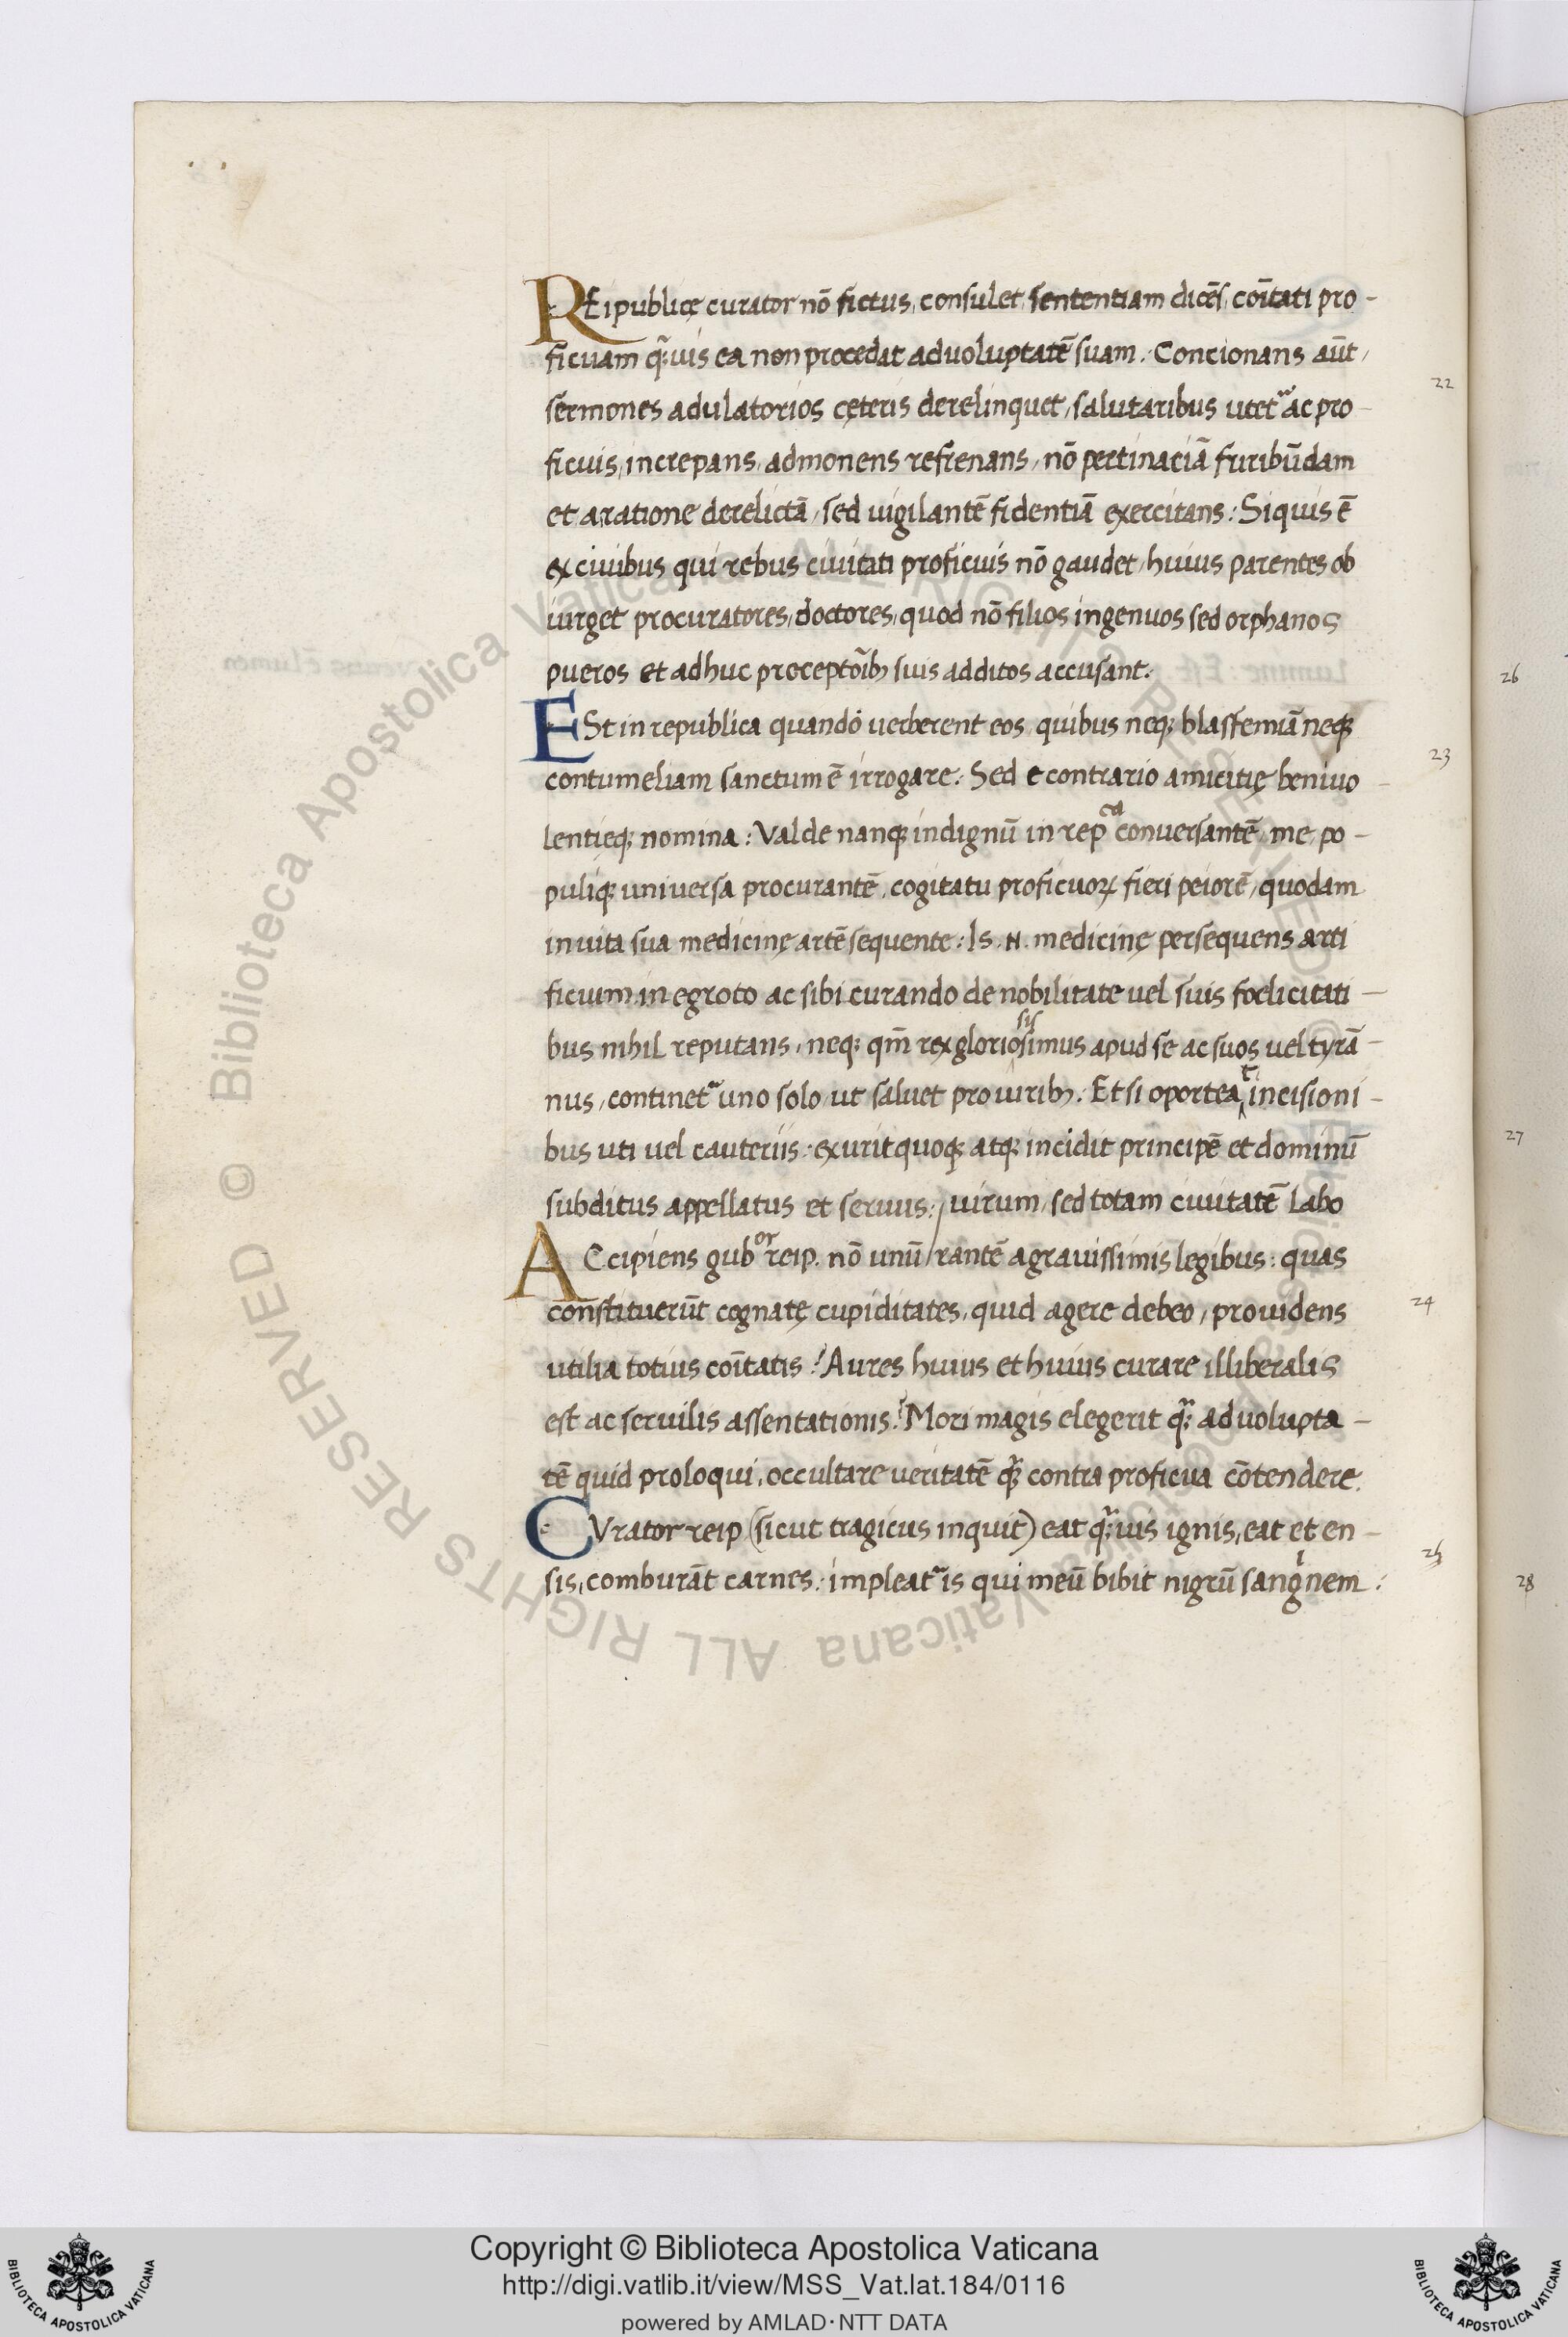 REipublicę curator nō fictus, consulet, sententiam dicēs, coītati pro-
ficuam q̃;uis ea non procedat ad voluptatē suam. Concionans aūt,
sermones adulatorios cęteris derelinquet, salutaribus utet᷑ ac pro-
ficuis, increpans, admonens refrenans, nō pertinaciā furibūdam
et a ratione derelictā, sed uigilantē fidentiā exercitans: Si quis ē
ex ciuibus qui rebus ciuitati proficuis nō gaudet, huius parentes ob
iurget procuratores, doctores, quod nō filios ingenuos sed orphanos
pueros et adhuc preceptōib; suis additos accusant.
22
ESt in republica quando uerberent eos quibus neq; blasfemiā neq;
contumeliam sanctum ē irrogare: Sed e contrario amicitię beniuo-
lentięq; nomina: Valde nanq; indignū in repca conuersantē, me, po-
puliq; universa procurantē, cogitatu proficuoꝝ fieri peiorē, quodam
in uita sua medicinę artē sequente: Is .N. medicinę persequens arti
ficium in egroto ac sibi curando de nobilitate uel suis foelicitati-
bus nihil reputans, neq; qm̄ rex gloriosissimus apud se ac suos uel tyrā-
nus, continet᷑ uno solo, ut saluet pro uirib;. Et si oporteat incisioni-
bus uti uel cauteriis: exurit quoq; atq; incidit principē et dominū
subditus appellatus et seruus: / uirum, sed totam ciuitatē Labo
23
ACcipiens gubor reip. nō unū / rantē a grauissimis legibus: quas
constituerūt cognatę cupiditates, quid agere debeo, prouidens
utilia totius coītatis? Aures huius et huius curare illiberalis
est ac seruilis assentationis? Mori magis elegerit q̃; ad volupta-
tē quid proloqui, occultare ueritatē q̃; contra proficua cōtendere.
24
CVrator reip (sicut tragicus inquit) eat q̃;uis ignis, eat et en-
sis, comburāt carnes: impleat᷑ is qui meū bibit nigrū sangⁱnem:
25
26
27
28
Copyright © Biblioteca Apostolica Vaticana
http://digi.vatlib.it/view/MSS_Vat.lat.184/0116
powered by AMLAD·NTT DATA
BIBLIOTECA APOSTOLICA VATICANA
BIBLIOTECA APOSTOLICA VATICANA
© Biblioteca Apostolica Vaticana ALL RIGHTS RESERVED